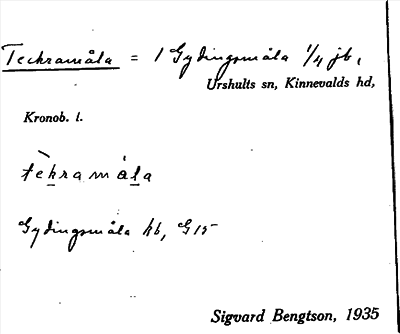 Teckramåla = 1 Gydingsmåla 1/4 jb,
Urshults sn, Kinnevalds hd,
Kronob. l.
tèkramåla
Gydingsmåla hb, G15
Sigvard Bengtson, 1935